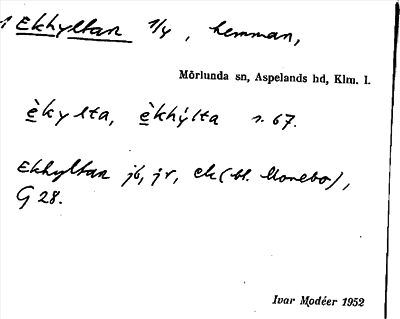 1 Ekhyltan 1/4, hemman,
Mörlunda sn, Aspelands hd, Klm. l.
èkylta, èkhy̍lta s. 67.
Ekhyltan jb, jr, ek (bl. Monebo),
G 28.
Ivar Modéer 1952